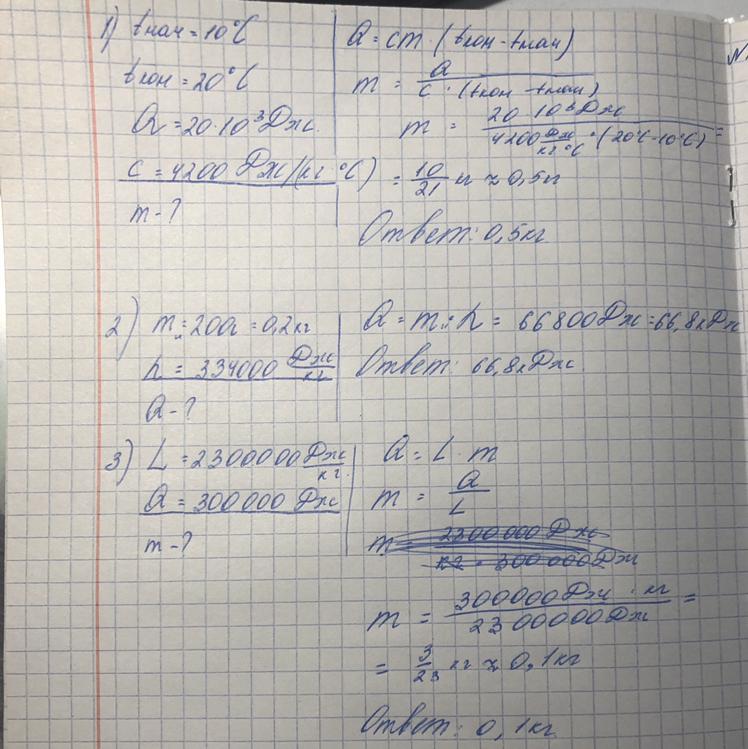 1) tнач = 10°C
tкон = 20°C
Q = 20·10³ Дж
c = 4200 Дж/(кг °C)
m - ?
Q = cm · (tкон - tнач)
m = Q / c · (tкон - tнач)
m = 20·10³ Дж / 4200 Дж/кг °C · (20°C - 10°C) =
= 10/21 кг ≈ 0,5 кг
Ответ: 0,5 кг
2) mл = 200г = 0,2 кг
λ = 334000 Дж/кг
Q - ?
Q = mл · λ = 66800 Дж = 66,8 кДж
Ответ: 66,8 кДж
3) L = 2300000 Дж/кг
Q = 300000 Дж
m - ?
Q = L · m
m = Q / L
m = 2300000 Дж / кг · 300000 Дж
m = 300000 Дж · кг / 2300000 Дж =
= 3/23 кг ≈ 0,1 кг
Ответ: 0,1 кг